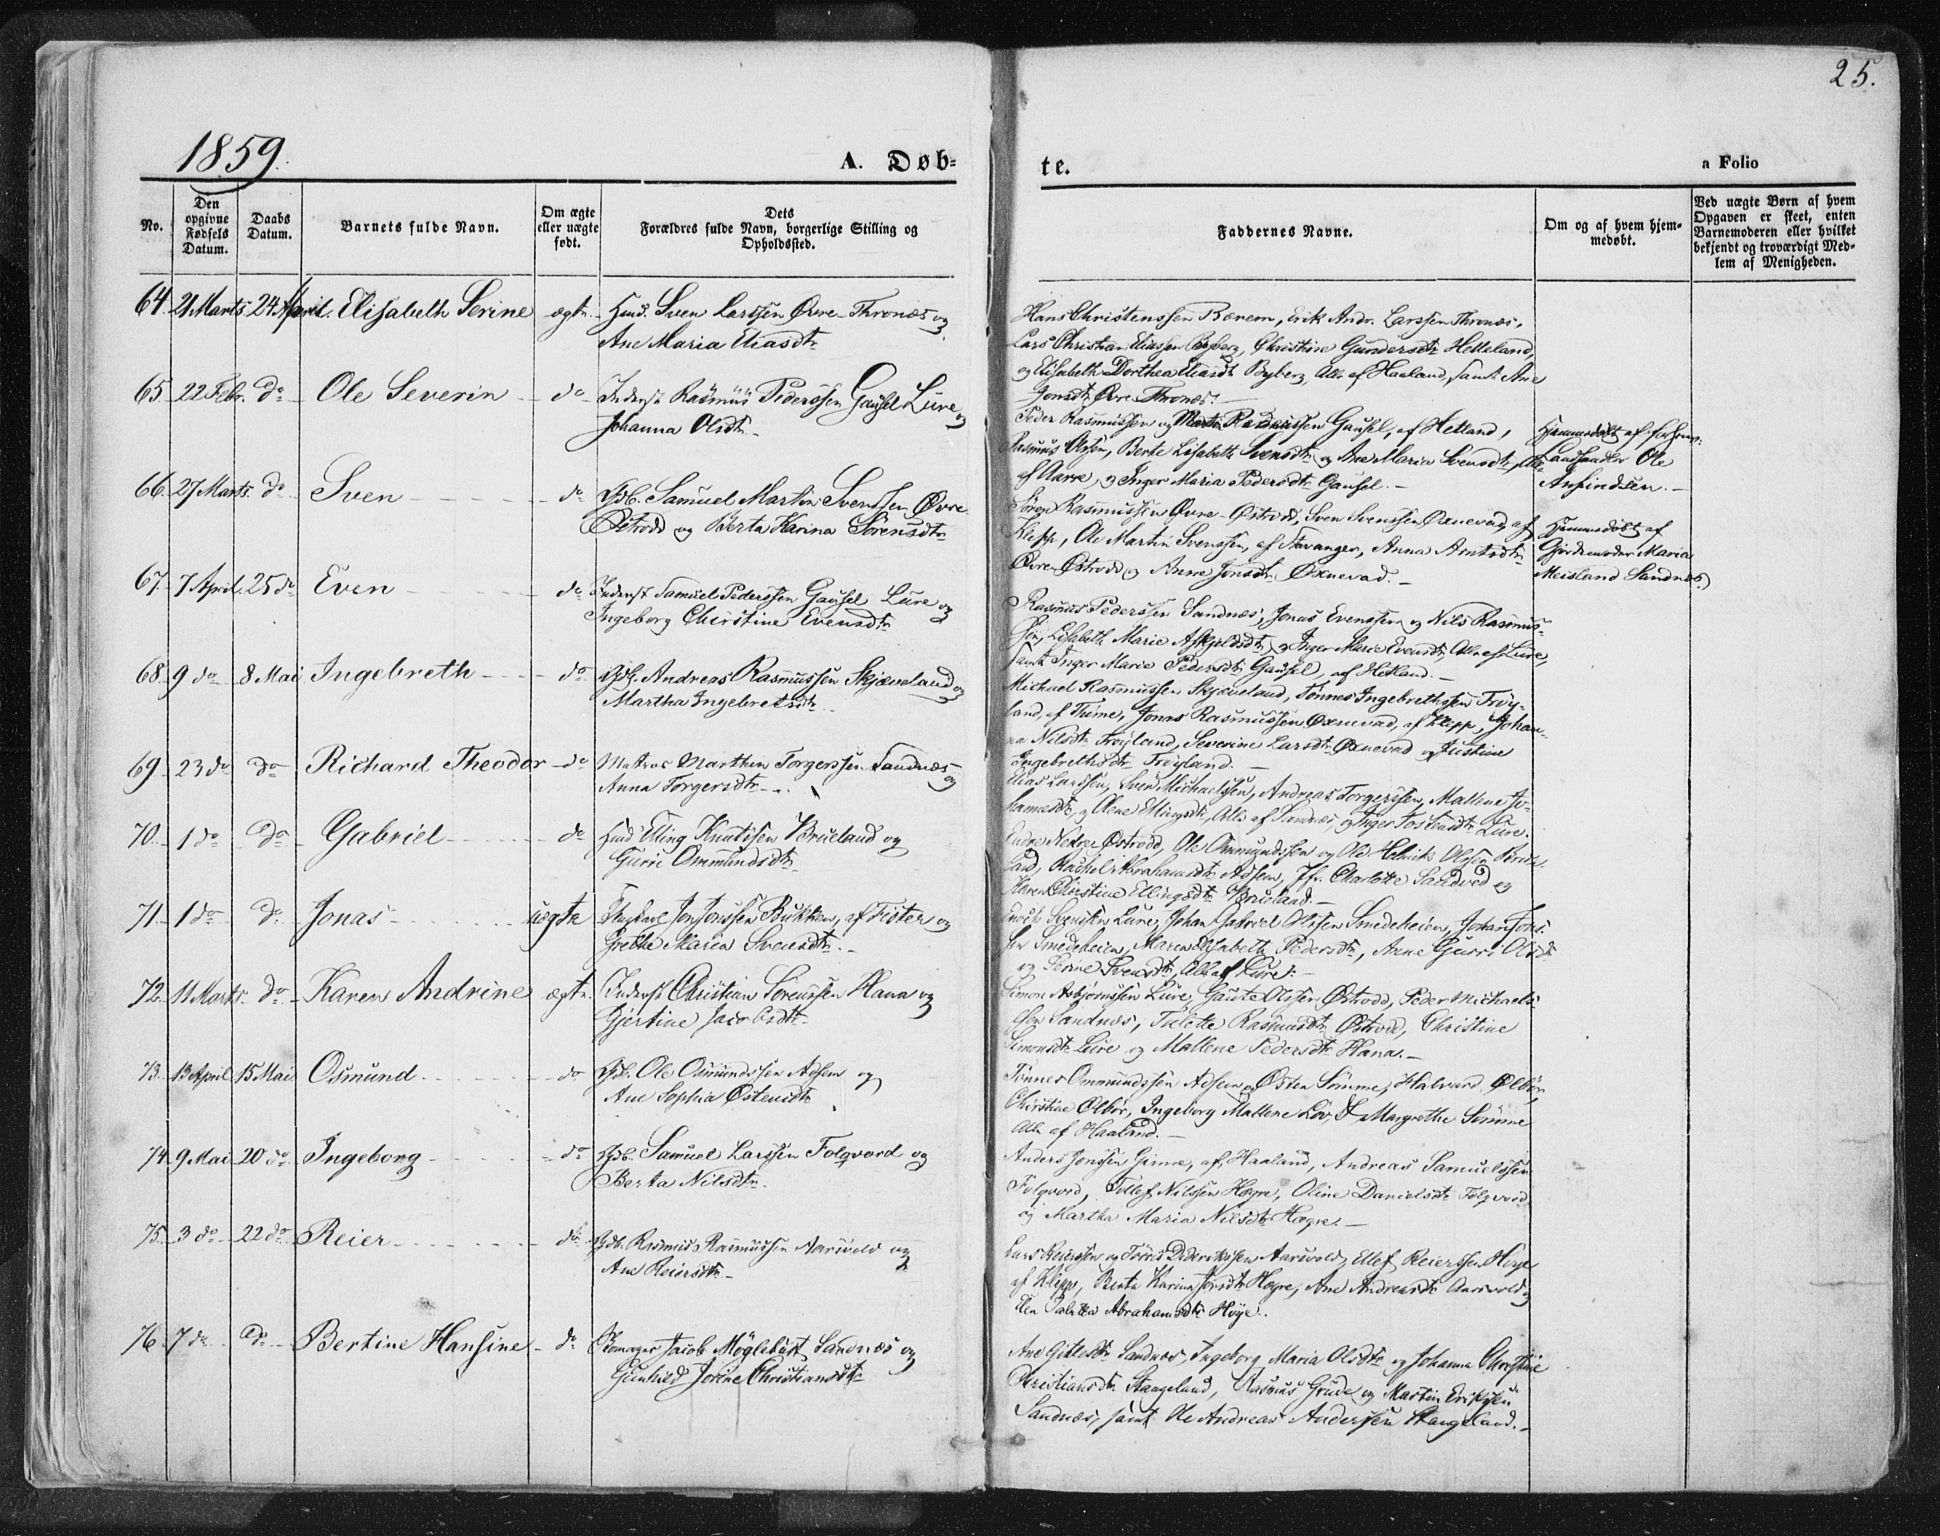 25.
1859.
A. Døb-
te.
a Folio
No.
Den opgivne Fødsels Datum.
Daabs Datum.
Barnets fulde Navn.
Om ægte eller uægte født.
Dets Forældres fulde Navn, borgerlige Stilling og Opholdssted.
Faddernes Navne.
Om og af hvem hjemmedøbt.
Ved uægte Børn af hvem Opgaven er skeet, enten Barnemoderen eller hvilket bekjendt og troværdigt Medlem af Menigheden.
64. 21 Marts 24 April. Elisabeth Serine ægte. Huus. Sven Larssen Øvre-Thronæs og
Ane Maria Eliasdtr
Hans Christenssen Rærem, Erik Andr. Larssen Thronæs,
Lars Christian Eliassen Byberg, Christine Gundersdtr Helleland,
og Elisabeth Dorthea Eliasdtr Byberg, Alle af Haaland, samt Ane
Jonsdtr Øvre Thronæs.
65 22 Febr. do Ole Severin do Inderst Rasmus Pederssen Gausel Lure og
Johanna Olsdtr
Peder Rasmussen og Martin Rasmussen Gausel, af Hetland,
Rasmus Olssen, Berte Lisabeth Svensdtr og Ane Maria Svensdtr, alle
af Aarre, og Inger Maria Pedersdtr Gausel.
Hjemmedøbt af
Landhandler Ole
Anfindsen.
66 27 Marts. do Sven do Gdb. Samuel Martin Svenssen Øvre
Østrodd og Berta Karina Sørensdtr
Sören Rasmussen Øvre-Østrodd, Sven Svenssen Øxnevad, af
Klepp, Ole Martin Svenssen, af Stavanger, Anna Arntsdtr
Øvre Østrodd og Anne Jonsdtr Øxnevad.
Hjemmedøbt af
Gjordemoder Maria
Meisland Sandnæs.
67 7 April. 25 do Even do Inderst Samuel Pederssen Gausel Lure og
Ingeborg Christine Evensdtr
Rasmus Pederssen Sandnæs, Jonas Evenssen og Nils Rasmus-
sen, Lisabeth Marie Askjeldsdtr, og Inger Marie Evensdtr, Alle af Lure,
samt Inger Marie Pedersdtr Gausel, af Hetland.
68 9 do 8 Mai Ingebreth do Gdb. Andreas Rasmussen Skjæveland og
Martha Ingebretsdtr
Michael Rasmussen Skjæveland, Tønnes Ingebrethssen Frøy-
land, af Thime, Jonas Rasmussen Øxnevad, af Klepp, Johan-
na Nilsdtr Frøyland, Severine Larsdtr Øxnevad og Justine
Ingebrethsdtr Frøyland.
69 23 do do Richard Theodor do Matros Marthin Torgerssen Sandnæs og
Anna Torgersdtr
Elias Larssen, Sven Michaelssen, Andreas Torgerssen, Mallene Jo-
hannesdtr, og Olene Ellingsdtr, Alle af Sandnæs, og Inger Tostensdtr Lure.
70. 1 do do Gabriel do Huus Elling Knutssen Brueland og
Gurie Ommundsdtr
Nedre Østrodd, Ole Ommundssen og Ole Helmick Olssen Brue-
land, Rachel Abrahamsdtr Adsen, Jfr. Charlotte Sandved og
Karen Christine Ellingsdtr Brueland.
71. 1 do do Jonas uægte Jon Jonssen Bukken, af Fister og
Grethe Maria Svensdtr.
Svenssen Lure, Johan Gabriel Olssen Smedeheien, Johan Jons-
sen Smedeheien, Maren Elisabeth Pedersdtr, Anne Gurri Olsdtr
og Serine Svensdtr, Alle af Lure.
72. 11 Marts. do Karen Andrine ægte. Inderst Christian Sörenssen Hana og
Gjertine Jacobsdtr
Simon Asbjørnssen Lure, Gaute Olssen Østrodd, Peder Michaels-
sen Sandnæs, Talette Rasmusdtr Østrod, Christine
Simonsdtr Lure og Mallene Pedersdtr Hana.
73. 13 April 15 Mai Osmund do Gdb. Ole Osmundssen Adsen og
Ane Sophia Østensdtr
Tönnes Ommundssen Adsen, Østen Sömme, Halvard Ølbör,
Christine Ølbör, Ingeborg Mallene Margrethe Sömme
Alle af Haaland.
74 9 Mai 20 do Ingeborg do Gdb. Samuel Larssen Folqvord og
Berta Nilsdtr.
Anders Jonssen Gimre, af Haaland, Andreas Samuelssen
Folqvord, Tollef Nilssen Høgre, Oline Danielsdtr Folqvord
og Martha Maria Nilsdtr Høgre.
75. 3 do 22 do Reier do Gdb. Rasmus Rasmussen Aarsvold og
Ane Reiersdtr
Lars Reierssen og Töres Dideriksssen Aarsvold, Ellef Reierssen Höye
af Klepp, Berta Karina Jonsdtr Høgre, Ane Andreasdtr Aarsvold og
Elen Talette Abrahamsdtr Höye.
76 7 do do Bertine Hansine do Skomager Jacob Möglebust Sandnæs og
Gunhild Jorine Christiansdtr
Ane Gitlesdtr Sandnæs, Ingeborg Maria Olsdtr og Johanna Christine
Christiansdtr Stangeland, Rasmus Grude og Martin Eriksen
Sandnæs, samt Ole Andreas Anderssen Stangeland.